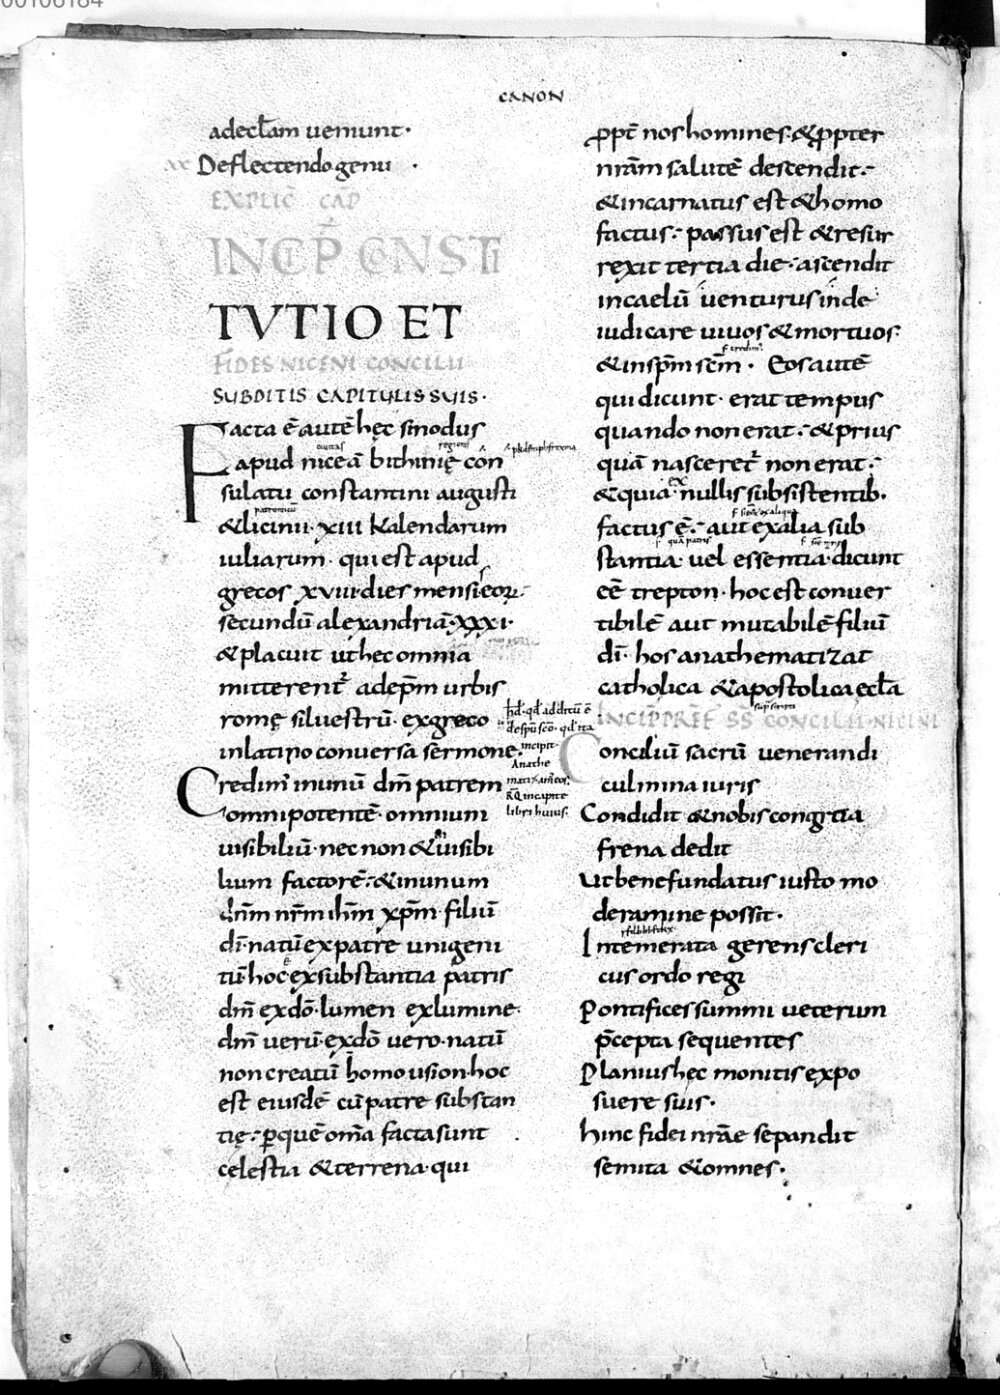 00106184
CANON
adeccl̄am ueniunt·
xx Deflectendo genu ·
EXPLIC̄ CAP̄
INCIP̄ CONSTI
TVTIO ET
FIDES NICENI CONCILII
SUBDITIS CAPITULIS SUIS·
Facta ē autē hęc sinodus
apud niceā bithinię con
sulatu constantini augusti
&licinii· xiii Kalendarum
iuliarum· qui est apud
grecos xuiiii dies mensis eor
secundū alexandriā·xxxi·
&placuit ut hec omnia
mitterent̄ adep̄m urbis
romę siluestrū· exgreco
inlatino conuersa sermone·
Credim̓ inunū dm̄ patrem
omnipotentē· omnium
uisibiliū· nec non &inuisibi
lium factorē·&inunum
dn̄m nr̄m ih̄m xp̄m· filiū
dī· natū expatre unigeni
tū· hoc ē exsubstantia patris
dm̄ exdō· lumen exlumine·
dm̄ uerū· exdō uero· natū
non creatū homousion· hoc
est eiusdē cū patre substan
tię· ꝑ quē om̄a facta sunt
celestia &terrena· qui
hd̄· qd̄ additū ē
despū scō· qd̄ ita
incipit·
Anathe
libri huius·
ꝓpt̄ nos homines·&ꝓpter
nr̄am salutē descendit·
&incarnatus est &homo
factus· passus est &resur
rexit tertia die· ascendit
incaelū uenturus inde
iudicare uiuos &mortuos·
&insp̄m sc̄m· Eos autē
qui dicunt· erat tempus
quando non erat·&prius
quā nasceret̄ non erat·
&quia ex nullis subsistentib·
factus ē· aut exalia sub
stantia· uel essentia· dicunt
eē trepton· hoc est conuer
tibilē aut mutabilē filiū
dī· hos anathematizat
catholica &apostolica eccl̄a
INCIP̄ PREF̄ SS̄ CONCILII NICENI
Conciliū sacrū uenerandi
culmina iuris
Condidit &nobis congrua
frena dedit
Ut bene fundatus iusto mo
deramine possit·
Intemerata gerens cleri
cus ordo regi
Pontifices summi ueterum
p̄cepta sequentes
Planius hęc monitis expo
suere suis·
hinc fidei nr̄ae se pandit
semita &omnes·